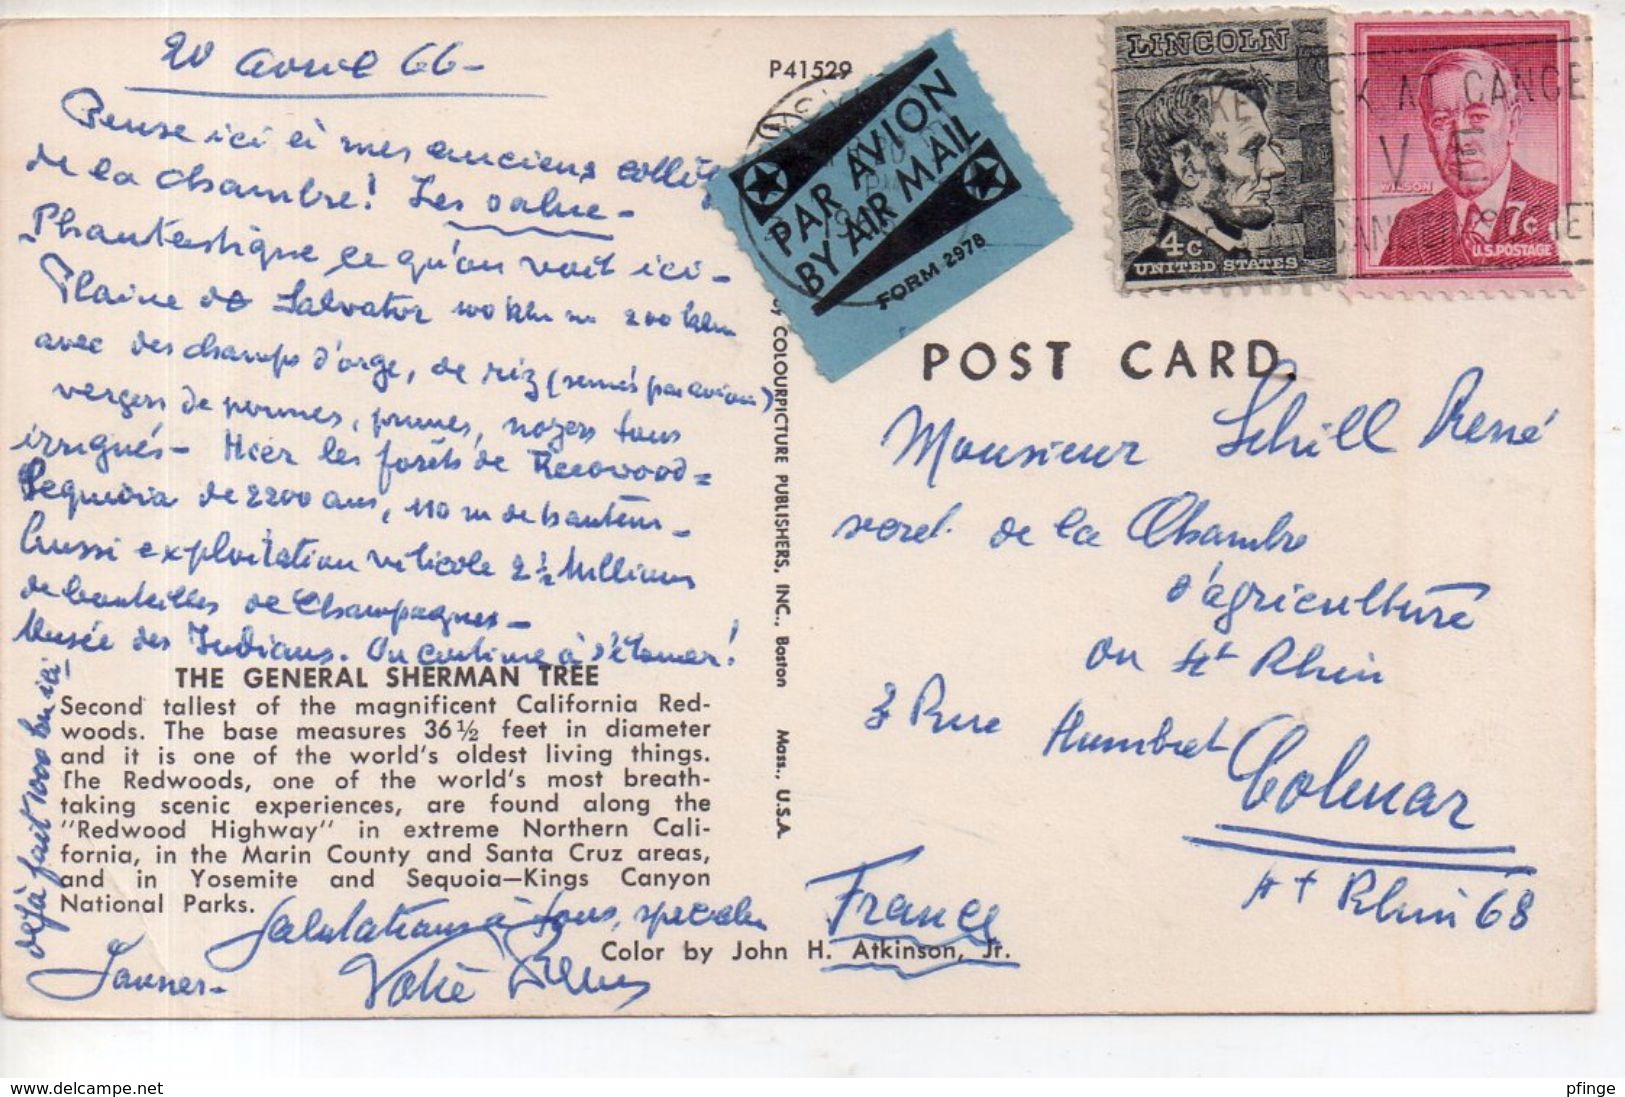 20 avril 66-
Pense ici à mes anciens
de la chambre! Les salue-
Phantastique ce qu'on voit ici-
Plaine de Salvator 100 klm 200 klm
avec des champs d'orge, de riz (semés par avion)
vergers de pommes, prunes, noyers tous
irrigués- Hier les forêts de Reedwood=
Sequoia de 2200 ans, 110 m de hauteur-
Aussi exploitation viticole 2 ½ Millions
de bouteilles de Champagnes-
Musée des Indians. On continue à s'étonner!
déjà fait 1000 klm ici
Salutations à tous,
Votre
THE GENERAL SHERMAN TREE
Second tallest of the magnificent California Red-
woods. The base measures 36½ feet in diameter
and it is one of the world's oldest living things.
The Redwoods, one of the world's most breath-
taking scenic experiences, are found along the
"Redwood Highway" in extreme Northern Cali-
fornia, in the Marin County and Santa Cruz areas,
and in Yosemite and Sequoia—Kings Canyon
National Parks.
Color by John H. Atkinson, Jr.
P41529
by COLOURPICTURE PUBLISHERS, INC., Boston Mass., U.S.A.
PAR AVION
BY AIR MAIL
FORM 2978
LINCOLN
4c
UNITED STATES
WILSON
7c
U.S. POSTAGE
POST CARD
Monsieur Schill René
secret. de la Chambre
d'agriculture
du Ht Rhin
2 Rue Humbret
Colmar
Ht Rhin 68
France
www.delcampe.net
pfinge